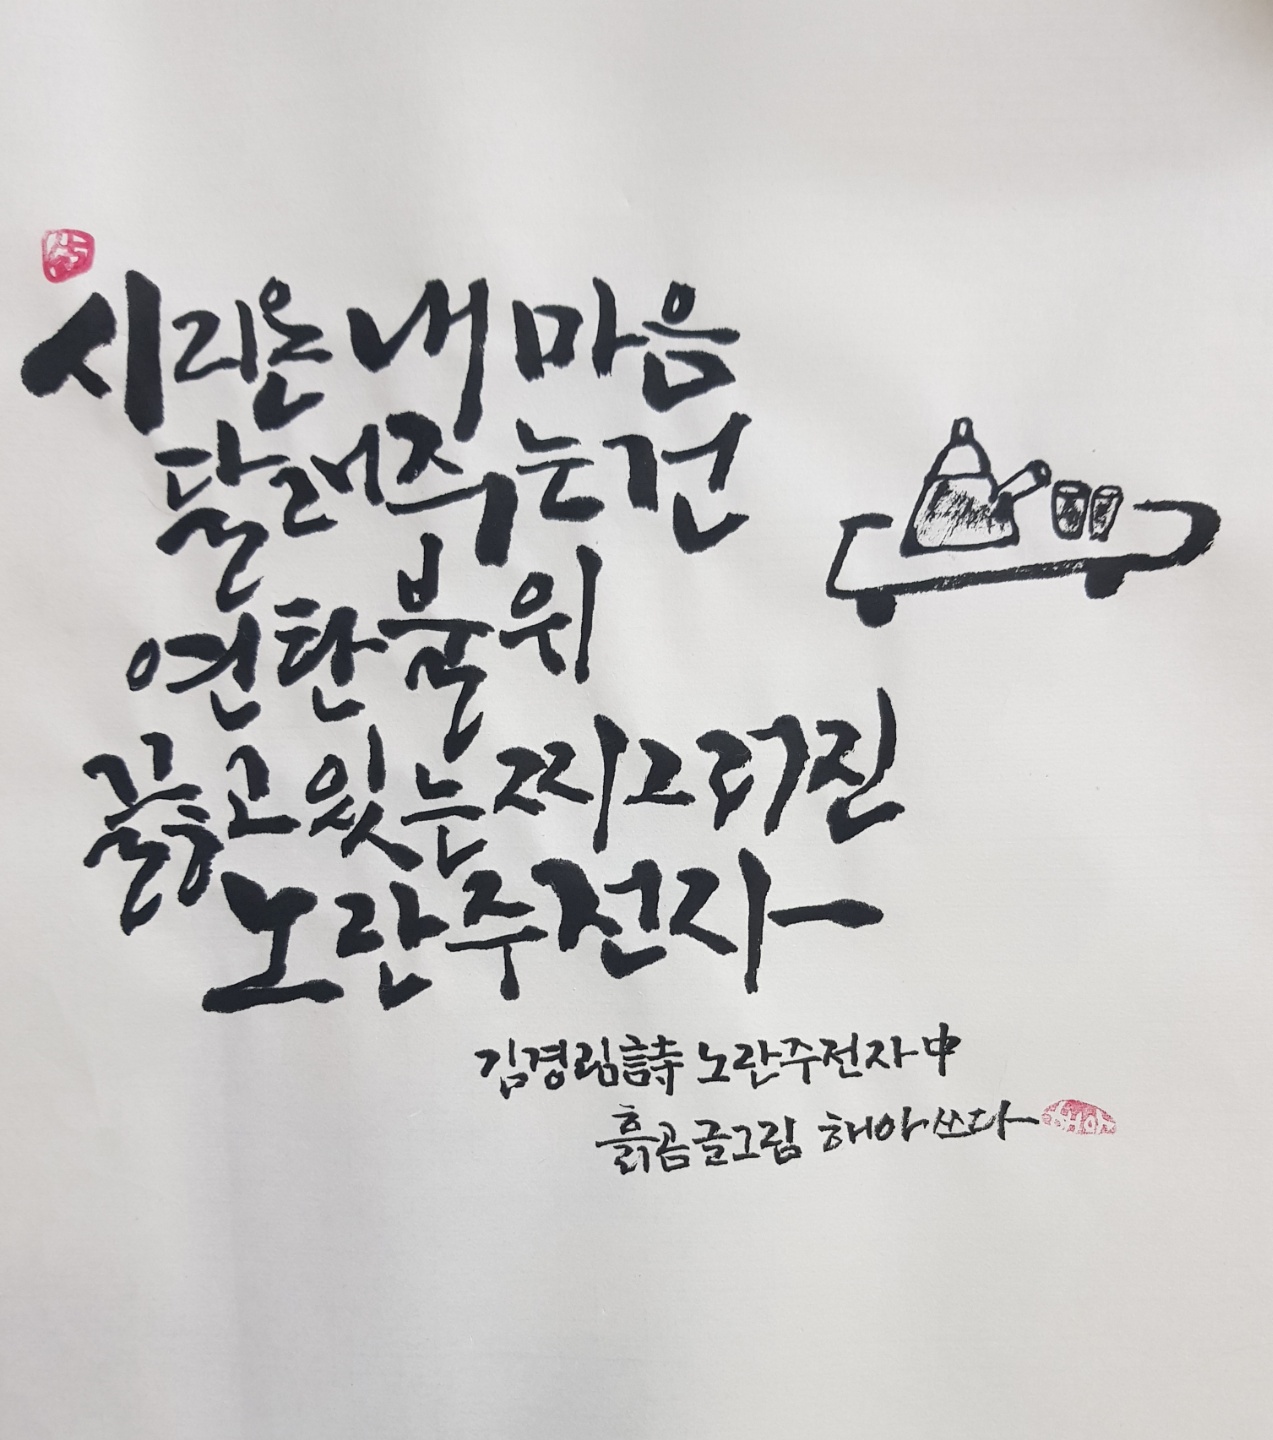 시리온 내 마음
달래주는건
연탄불위
끓고있는 찌그러진
노란주전자
김경림詩 노란주전자中
흙곰글그림 해아쓰다